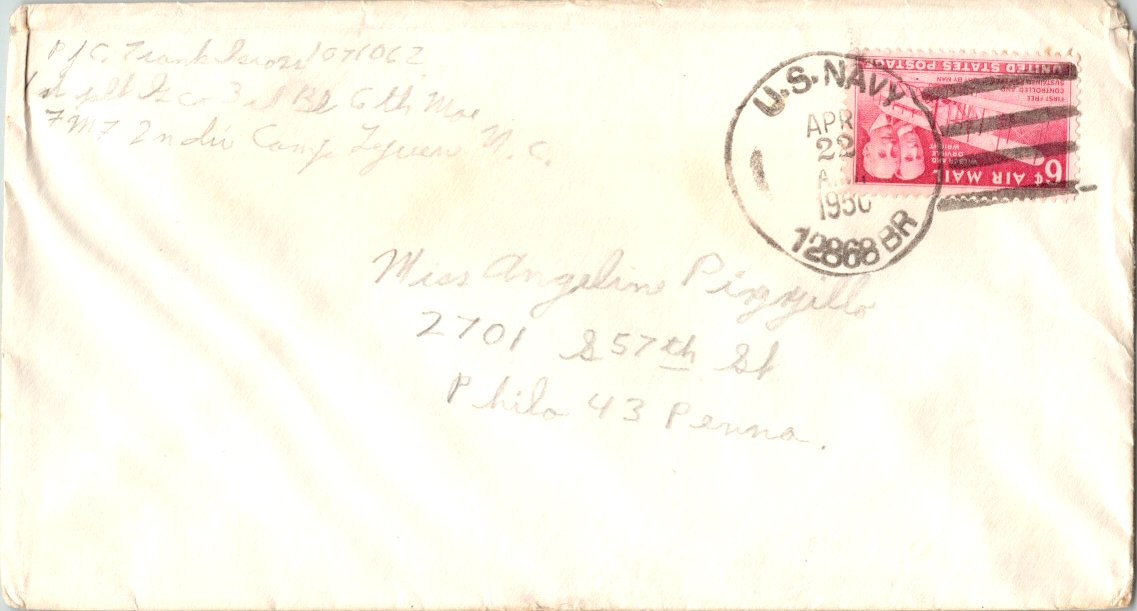 Pfc. Frank 1071062
1st plt Co 3rd Bn 6th Mar
FMF 2nd div Camp Lejeune N. C.
U.S. NAVY
APR
22
A.M.
1950
12868 BR
UNITED STATES POSTAGE
FIRST FREE
CONTROLLED AND
SUSTAINED
BY MAN
WILBUR AND
ORVILLE
WRIGHT
6¢ AIR MAIL
Miss Angeline Pizzillo
2701 S 57th St
Phila 43 Penna.